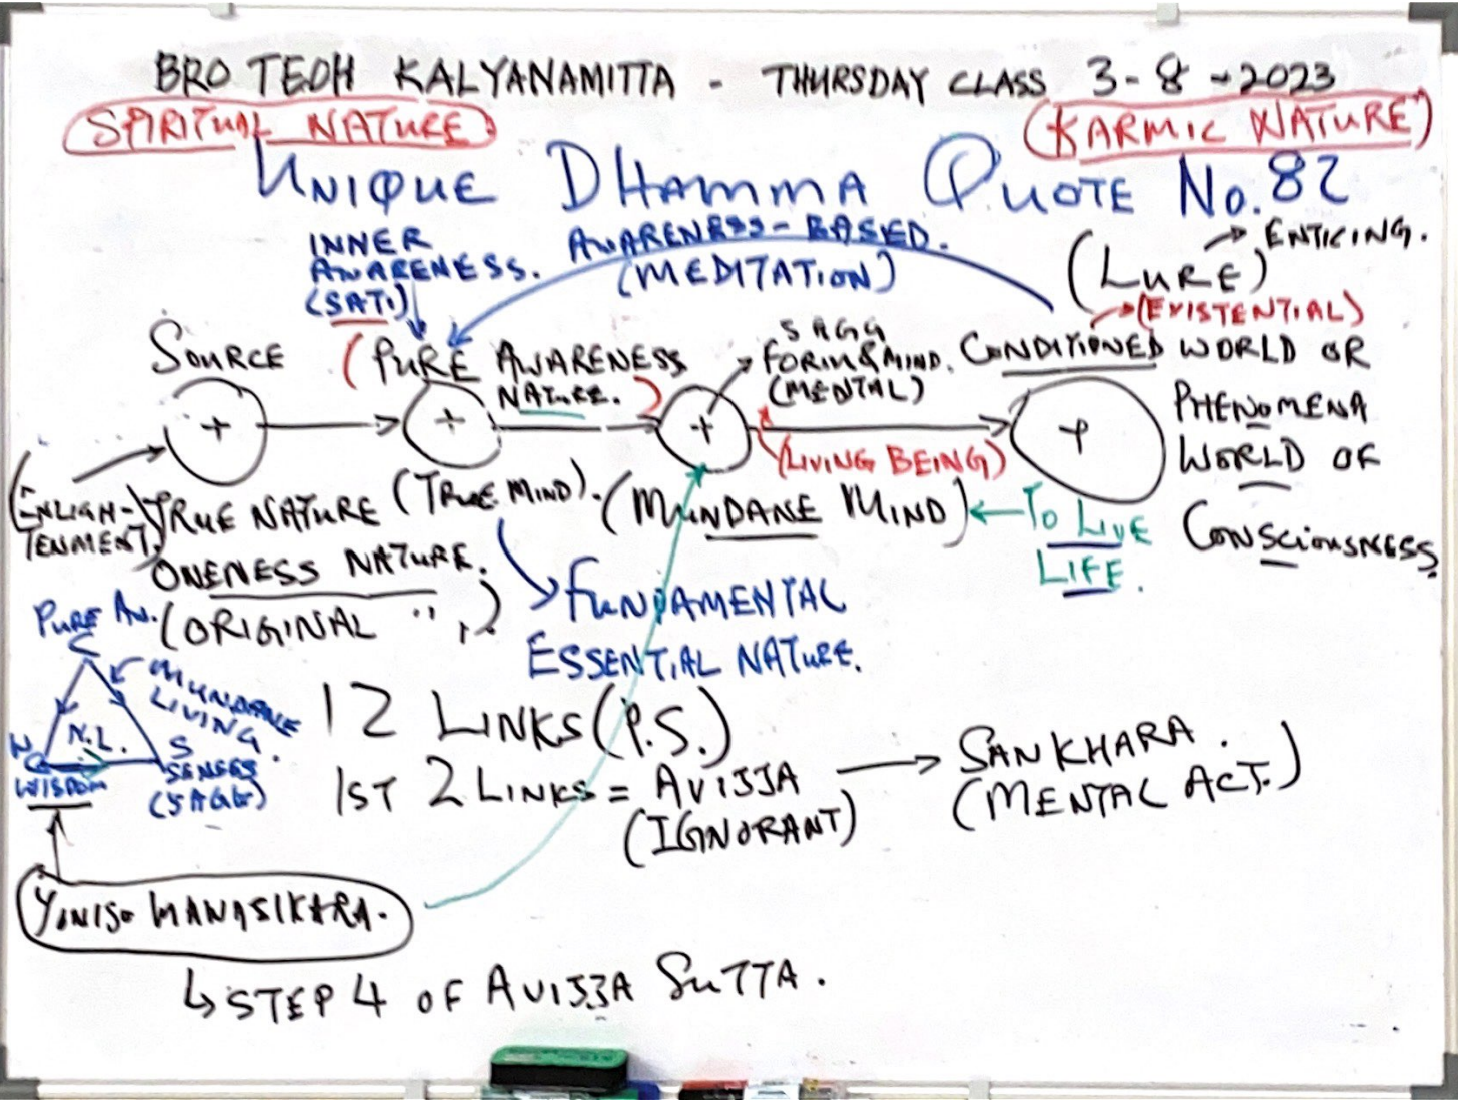 BRO TEOH KALYANAMITTA - THURSDAY CLASS 3-8-2023
(SPIRITUAL NATURE)
(KARMIC NATURE)
UNIQUE DHAMMA QUOTE NO. 82
INNER
AWARENESS.
(SATI)
AWARENESS-BASED.
(MEDITATION)
(LURE) → ENTICING.
→ (EXISTENTIAL)
SOURCE
(PURE AWARENESS
NATURE.)
5 AGG
FORM & MIND.
(MENTAL)
CONDITIONED WORLD OR
PHENOMENA
WORLD OF
CONSCIOUSNESS.
(LIVING BEING)
(ENLIGH-
TENMENT)
TRUE NATURE
ONENESS NATURE.
(ORIGINAL " )
(TRUE MIND).
(MUNDANE MIND) ← TO LIVE
LIFE.
FUNDAMENTAL
ESSENTIAL NATURE.
PURE AW.
MUNDANE
LIVING.
N.L.
WISDOM
S
SENSES
(5 AGG)
12 LINKS (P.S.)
1ST 2 LINKS = AVIJJA → SANKHARA.
(IGNORANT)
(MENTAL ACT.)
YONISO MANASIKARA.
↳ STEP 4 OF AVIJJA SUTTA.